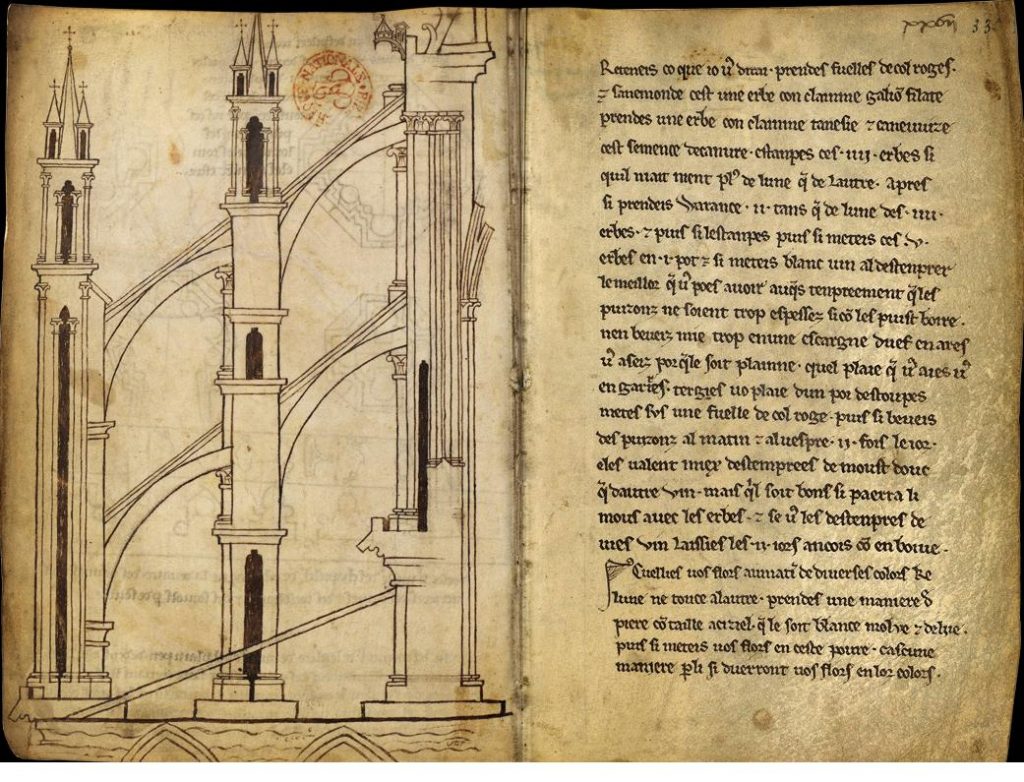 Reteneis co que io ũ dirai · prendes fuelles de col roges ·
⁊ sanemonde cest une erbe con clainme galiõ filate
prendes une erbe con clainme tanesie ⁊ caneuvize
cest semence decanure · estanpes ces · iiii · erbes si
quil niait nient pl⁹ de lune q̃ de lautre · apres
si prendeis Warance · ii · tans q̃ de lune des · iiii ·
erbes · ⁊ puis si lestanpes puis si meteis ces · v ·
erbes en · i · pot ⁊ si meteis blanc uin al destenprer
le meillor q̃ ũ poes auoir auq̃s tenpreement q̃ les
puizonz ne soient trop espessez si cõ les puist boire ·
nen beueiz mie trop en une escargne duef en ares
ũ asez por q̃ le soit plainne · quel plaie q̃ ũ aies ũ
en garires · tergies uo plaie dun poi destoupes
metes sus une fuelle de col roge · puis si beueis
des puizonz al matin ⁊ aluespre · ii · fois le ior ·
eles ualent miex destemprees de moust douc
q̃ dautre vin · mais q̃l soit bons si paerra li
mous auec les erbes · ⁊ se ũ les destenpres de
uies vin laissies les · ii · iors ancois cõ en boiue ·
Cuellies uos flors aumatĩ de diuerses colors ke
lune ne touce alautre · prendes une maniere đ
piere cõ taille aciziel · q̃ le soit blance molue ⁊ deliie ·
puis si meteis uos flors en ceste poure · cascune
maniere p̱ li si duerront uos flors en lor colors ·
33
NATIONALE